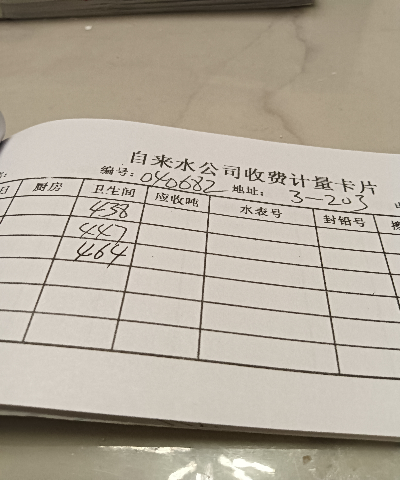 自来水公司收费计量卡片
编号: 040682 地址: 3-203
日 厨房 卫生间 应收吨 水表号 封铅号
438
447
464